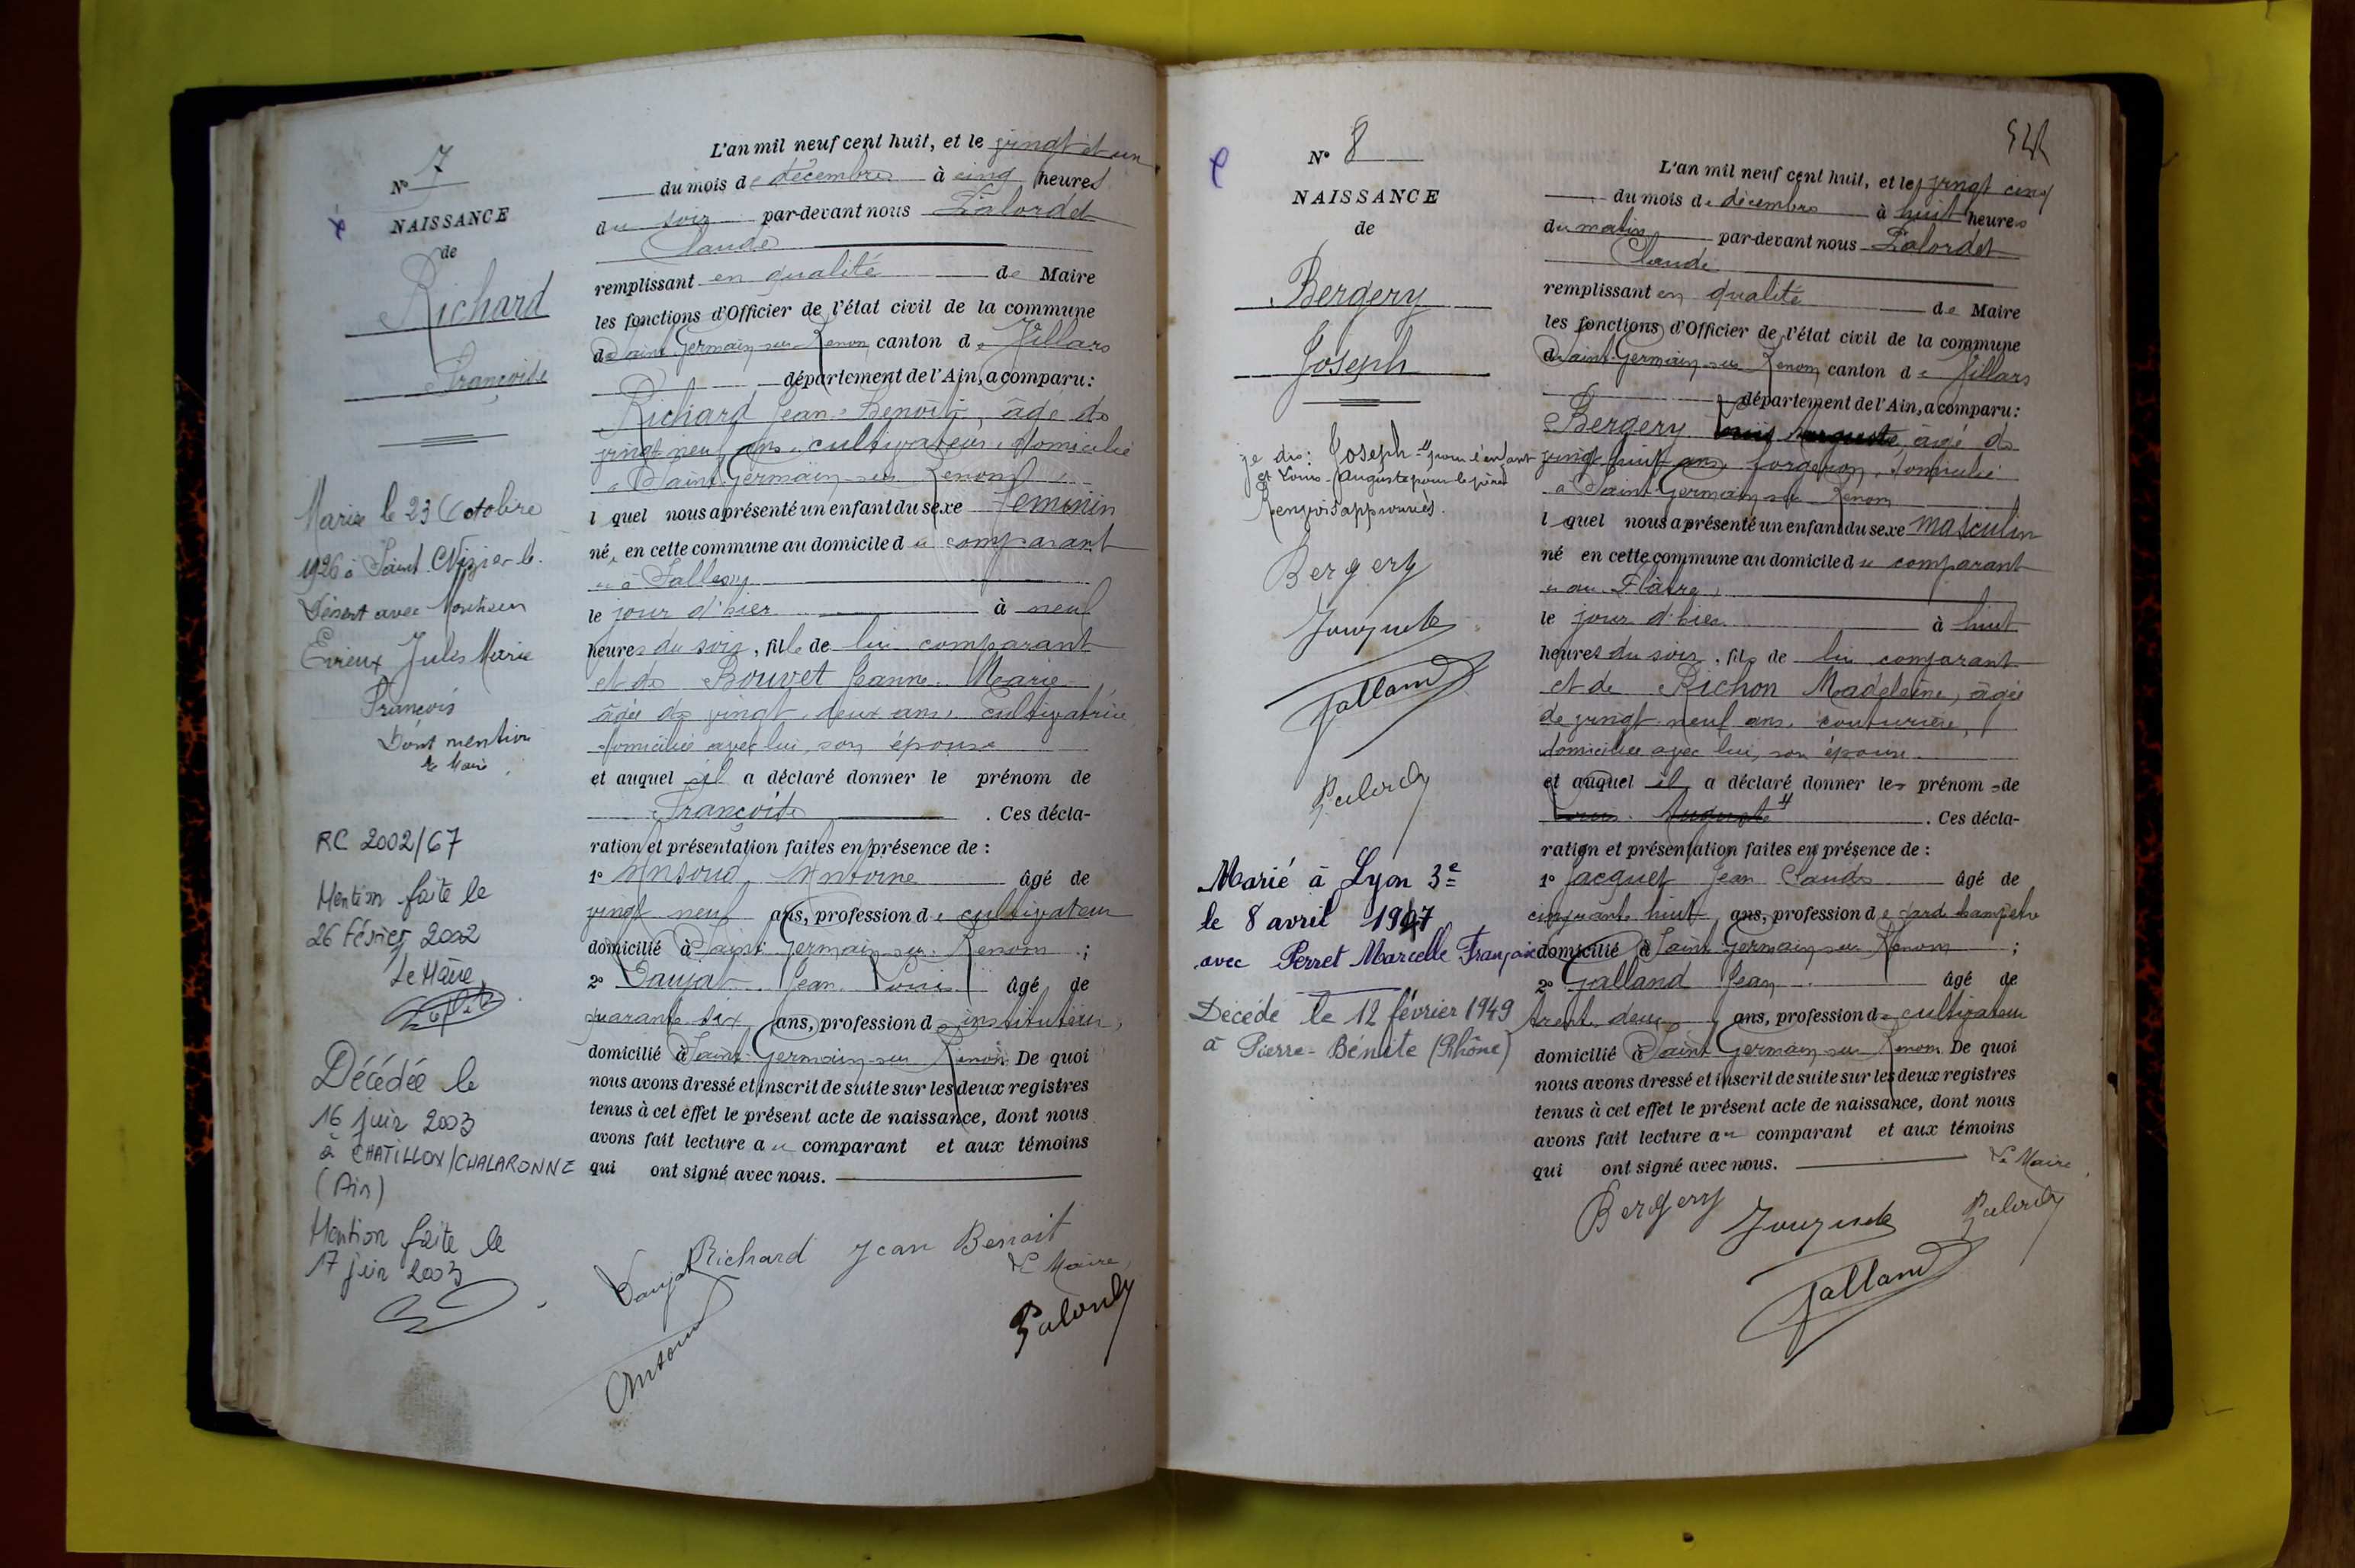 N° 7
NAISSANCE
de
Richard
Françoise
Mariée le 23 Octobre
1926 à Saint Nizier le
Désert avec Monsieur
Evieux Jules Marie
François
Dont mention
le Maire
RC 2002/67
Mention faite le
26 Février 2002
Le Maire
Décédée le
16 juin 2003
à CHATILLON/CHALARONNE
(Ain)
Mention faite le
17 juin 2003
L'an mil neuf cent huit, et le vingt et un
du mois de décembre à cinq heures
du soir par-devant nous Palordet
Claude
remplissant en qualité de Maire
les fonctions d'Officier de l'état civil de la commune
de Saint Germain-sur-Renom canton de Villars
département de l'Ain, a comparu :
Richard Jean-Benoît, âgé de
vingt neuf ans, cultivateur, domicilié
à Saint Germain-sur-Renom
lequel nous a présenté un enfant du sexe féminin
né, en cette commune au domicile du comparant
le jour d'hier à neuf
heures du soir, fille de lui comparant
et de Bouvet Jeanne Marie
âgée de vingt-deux ans, cultivatrice,
domiciliée avec lui, son épouse
et auquel il a déclaré donner le prénom de
Françoise . Ces décla-
ration et présentation faites en présence de :
1° Ansoud Antoine âgé de
vingt neuf ans, profession de cultivateur
domicilié à Saint Germain-sur-Renom ;
2° Daujat Jean Louis âgé de
quarante six ans, profession d'instituteur,
domicilié à Saint-Germain-sur Renom De quoi
nous avons dressé et inscrit de suite sur les deux registres
tenus à cet effet le présent acte de naissance, dont nous
avons fait lecture au comparant et aux témoins
qui ont signé avec nous.
Daujat Richard Jean Benoit
Le Maire,
Ansoud
Palordet
N° 8
NAISSANCE
de
Bergery
Joseph
je dis : Joseph pour l'enfant
et Louis-Auguste pour le père
Renvois approuvés.
Bergery
Jacquet
Galland
Palordet
Marié à Lyon 3e
le 8 avril 1947
avec Perret Marcelle Françoise
Décédé le 12 février 1949
à Pierre-Bénite (Rhône)
L'an mil neuf cent huit, et le vingt cinq
du mois de décembre à huit heures
du matin par-devant nous Palordet
Claude
remplissant en qualité de Maire
les fonctions d'Officier de l'état civil de la commune
de Saint-Germain-sur Renom canton de Villars
département de l'Ain, a comparu :
Bergery Louis Auguste, âgé de
vingt huit ans, forgeron, domicilié
à Saint-Germain-sur Renom
lequel nous a présenté un enfant du sexe masculin
né en cette commune au domicile du comparant
le jour d'hier à huit
heures du soir, fils de lui comparant
et de Richon Madeleine, âgée
de vingt-neuf ans, couturière,
domiciliée avec lui, son épouse
et auquel il a déclaré donner les prénoms de
Louis-Auguste . Ces décla-
ration et présentation faites en présence de :
1° Jacquet Jean Claude âgé de
cinquante huit ans, profession de garde champêtre
domicilié à Saint-Germain-sur Renom ;
2° Galland Jean âgé de
trente deux ans, profession de cultivateur
domicilié à Saint Germain-sur Renom De quoi
nous avons dressé et inscrit de suite sur les deux registres
tenus à cet effet le présent acte de naissance, dont nous
avons fait lecture au comparant et aux témoins
qui ont signé avec nous.
Le Maire,
Bergery Jacquet Palordet
Galland